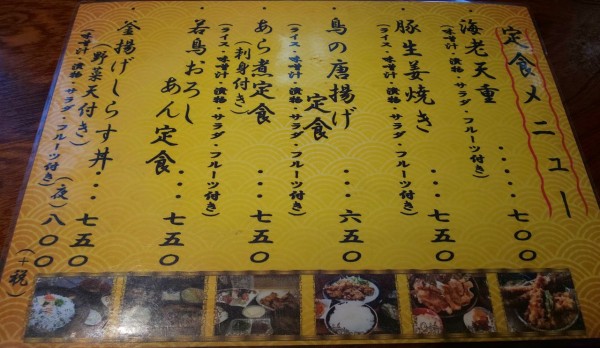 定食メニュー
海老天重・・・・七〇〇
(味噌汁・漬物・サラダ・フルーツ付き)
豚生姜焼き・・・七五〇
(ライス・味噌汁・漬物・サラダ・フルーツ付き)
鳥の唐揚げ
定食・・・六五〇
(ライス・味噌汁・漬物・サラダ・フルーツ付き)
あら煮定食・・・七五〇
(刺身付き)
(ライス・味噌汁・漬物・サラダ・フルーツ付き)
若鳥おろし
あん定食・・・・七五〇
釜揚げしらす丼・・・七五〇
(野菜天付き)(夜)八〇〇
味噌汁・漬物・サラダ・フルーツ付き)
(+税)